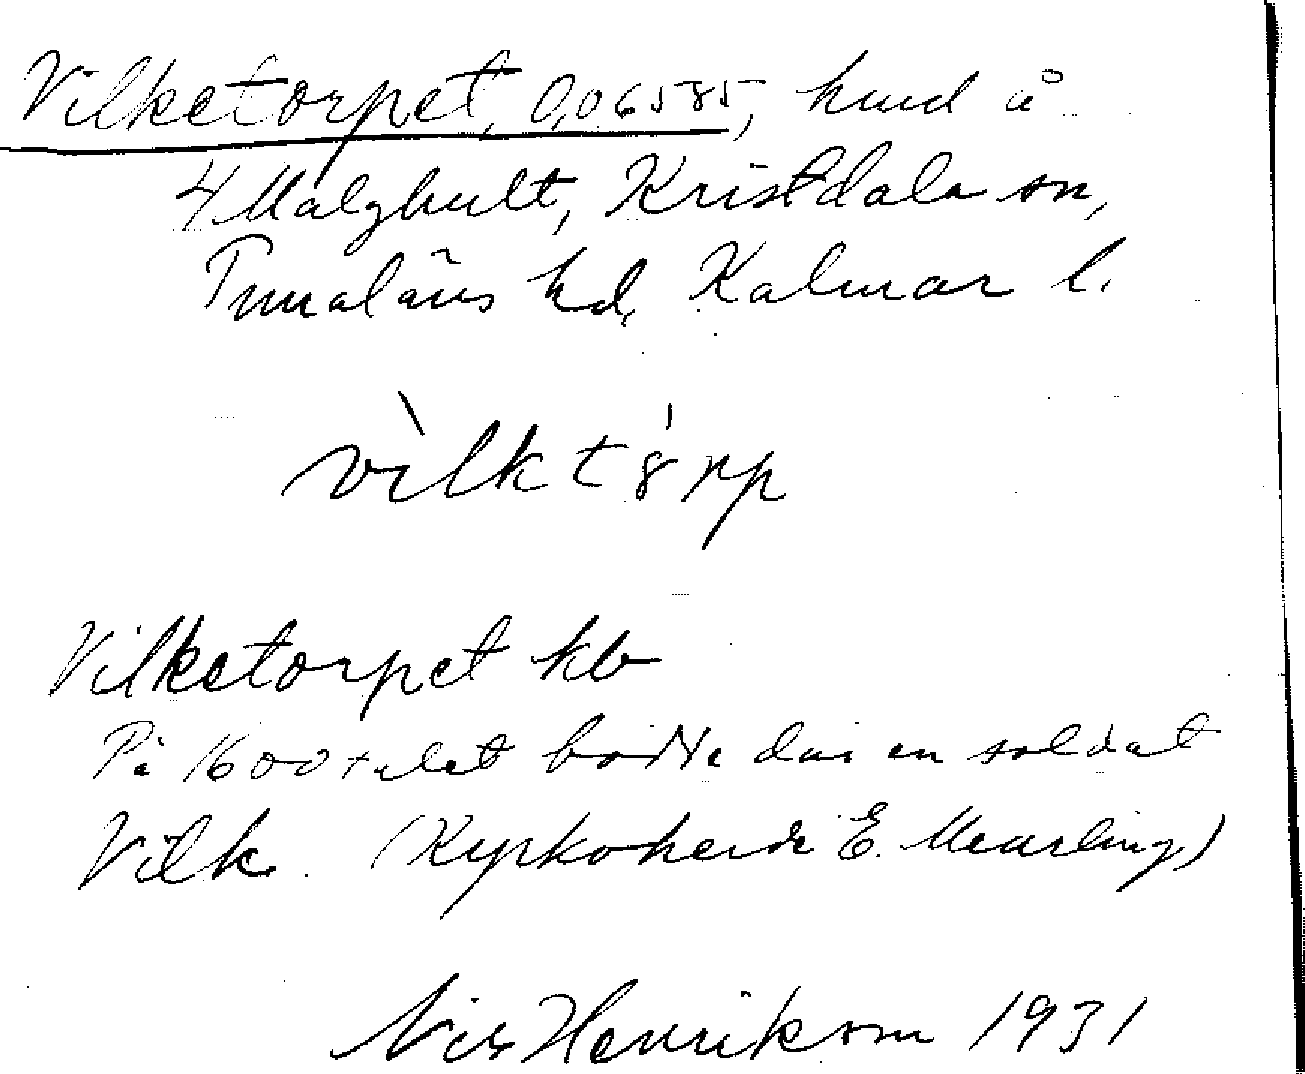 Vilketorpet, 0,06585, hmd å
4 Målghult, Kristdala sn,
Tunaläns hd, Kalmar l.
vìlktȣ́rp
Vilketorpet kb
På 1600-talet bodde där en soldat
Vilk. (Kyrkoherde E. Meurling)
Nils Henrikson 1931